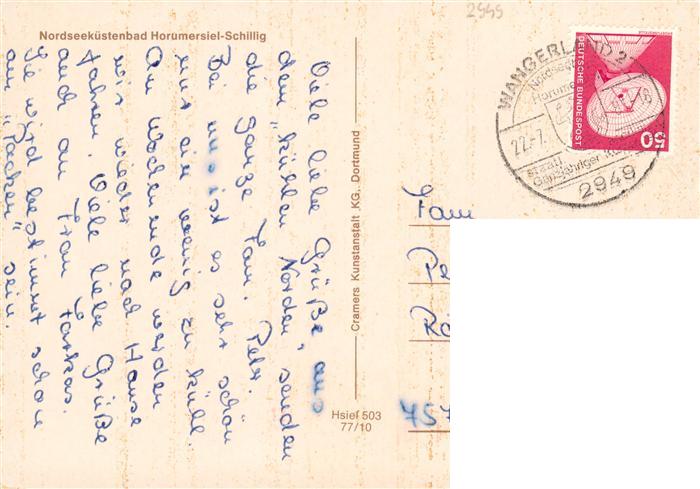 2949
Nordseeküstenbad Horumersiel-Schillig
Viele liebe Grüße, aus
dem „kühlen Norden" senden
die ganze Fam. Petr.
Bei uns ist es sehr schön
nur ein wenig zu kühl.
Am Wochenende werden
wir wieder nach Hause
fahren. Viele liebe Grüße
auch an Frau Farkas.
Sie wird bestimmt schon
am „Packen" sein.
Cramers Kunstanstalt KG. Dortmund
Hsief 503
77/10
WANGERLAND 2
Nordsee
Horume
22.-7.
staatl
Ganzjähriger
2949
DEUTSCHE BUNDESPOST
50
Fam
Pe
Rö
757